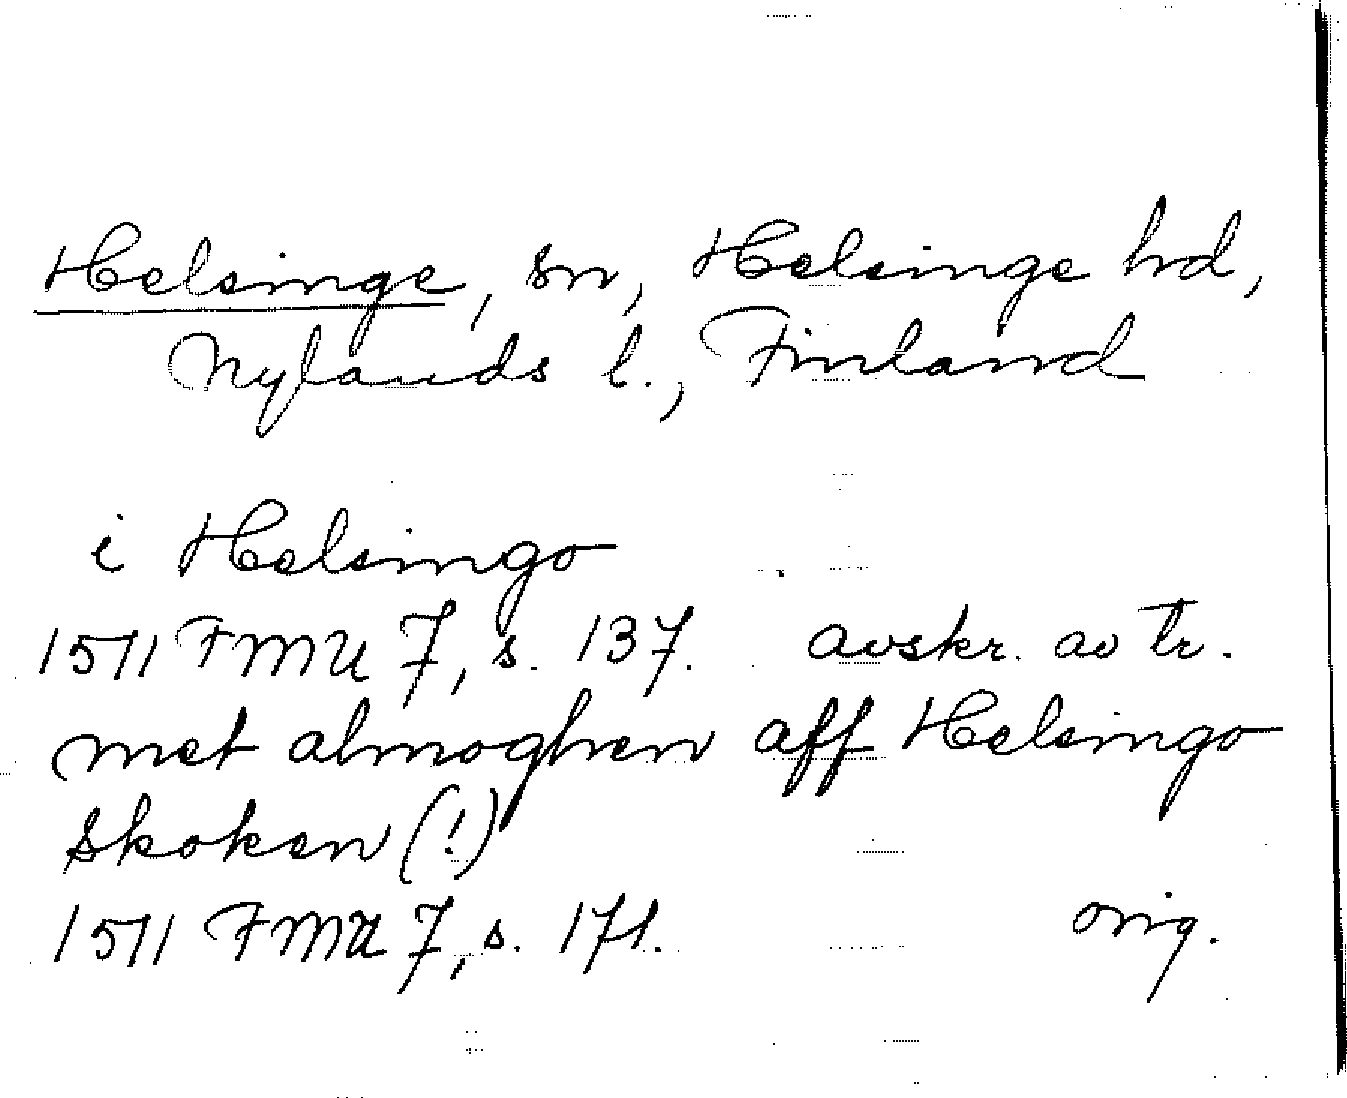 Helsinge, sn, Helsinge hd,
Nylands l., Finland
i Helsingo
1511 FMU 7, s. 137. avskr. av tr.
met almoghen aff Helsingo
skoken (!)
1511 FMU 7, s. 171. orig.